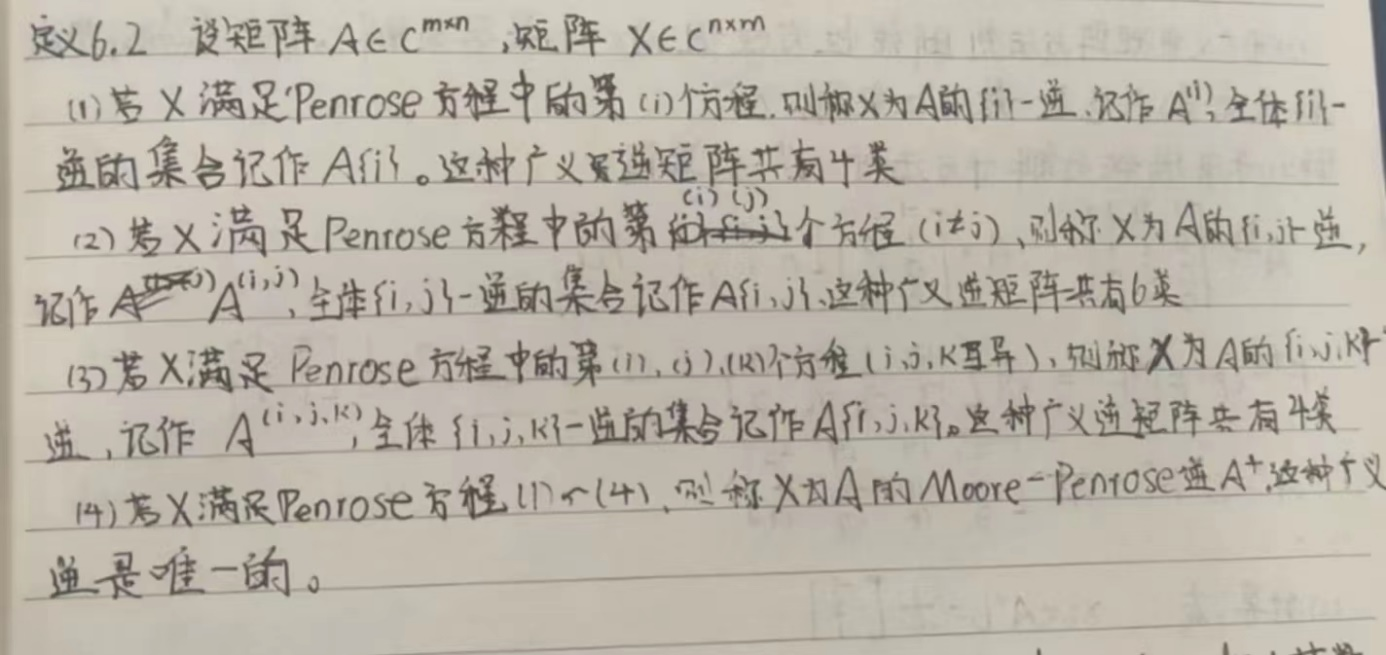 定义6.2 设矩阵 A∈C^{m×n},矩阵 X∈C^{n×m}
(1)若X满足Penrose方程中的第(i)个方程,则称X为A的{i}-逆,记作A^{(i)},全体{i}-
逆的集合记作A{i}。这种广义逆矩阵共有4类
(2)若X满足Penrose方程中的第(i)(j)个方程(i≠j),则称X为A的{i,j}-逆,
记作A^{(i,j)},全体{i,j}-逆的集合记作A{i,j},这种广义逆矩阵共有6类
(3)若X满足Penrose方程中的第(i),(j),(k)个方程(i,j,k互异),则称X为A的{i,j,k}-
逆,记作A^{(i,j,k)},全体{i,j,k}-逆的集合记作A{i,j,k}。这种广义逆矩阵共有4类
(4)若X满足Penrose方程(1)~(4),则称X为A的Moore-Penrose逆A^+,这种广义
逆是唯一的。